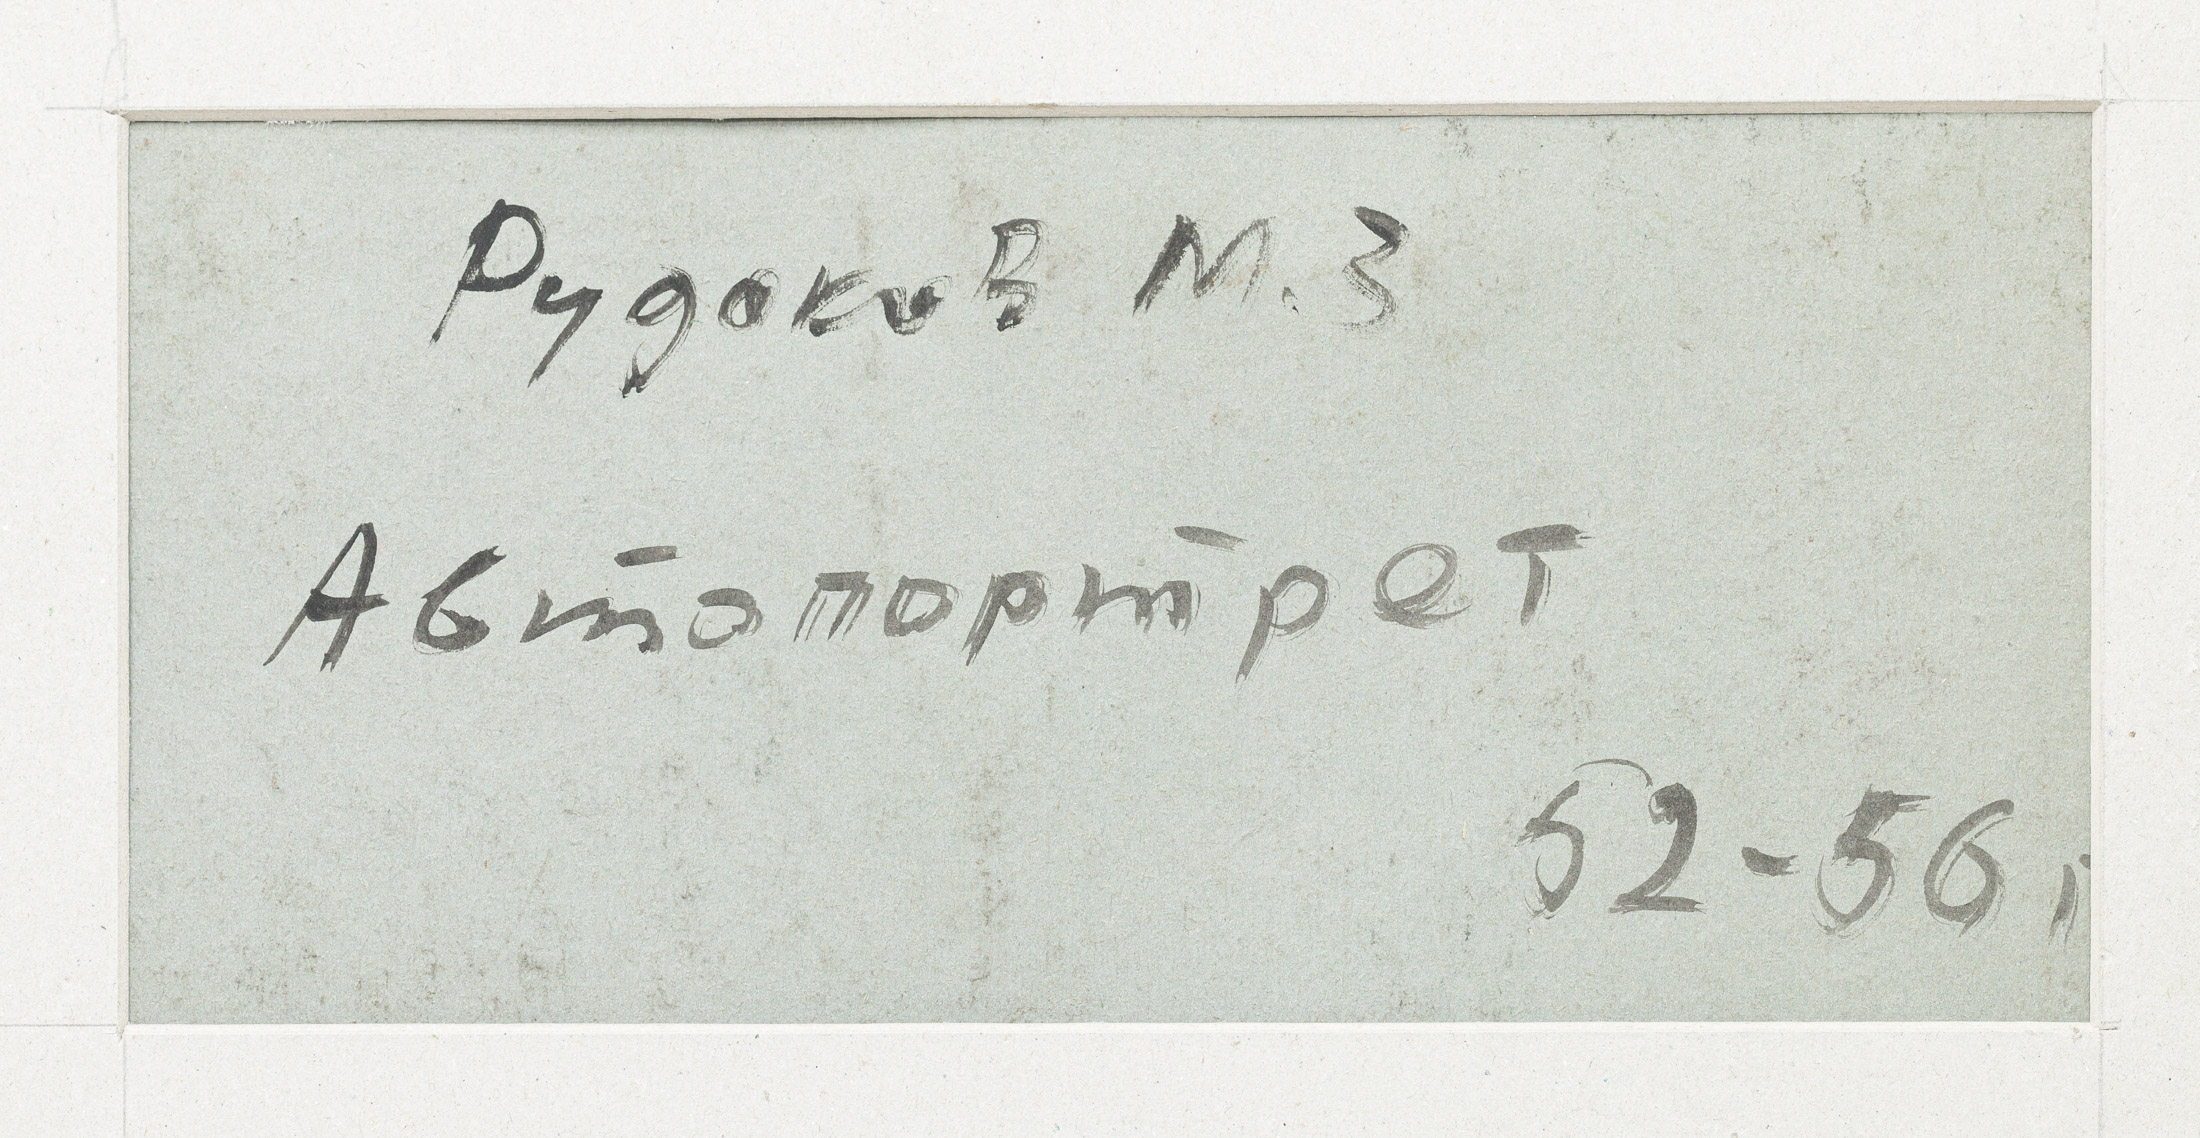 Рудаков М.З
Автопортрет
52-56 г